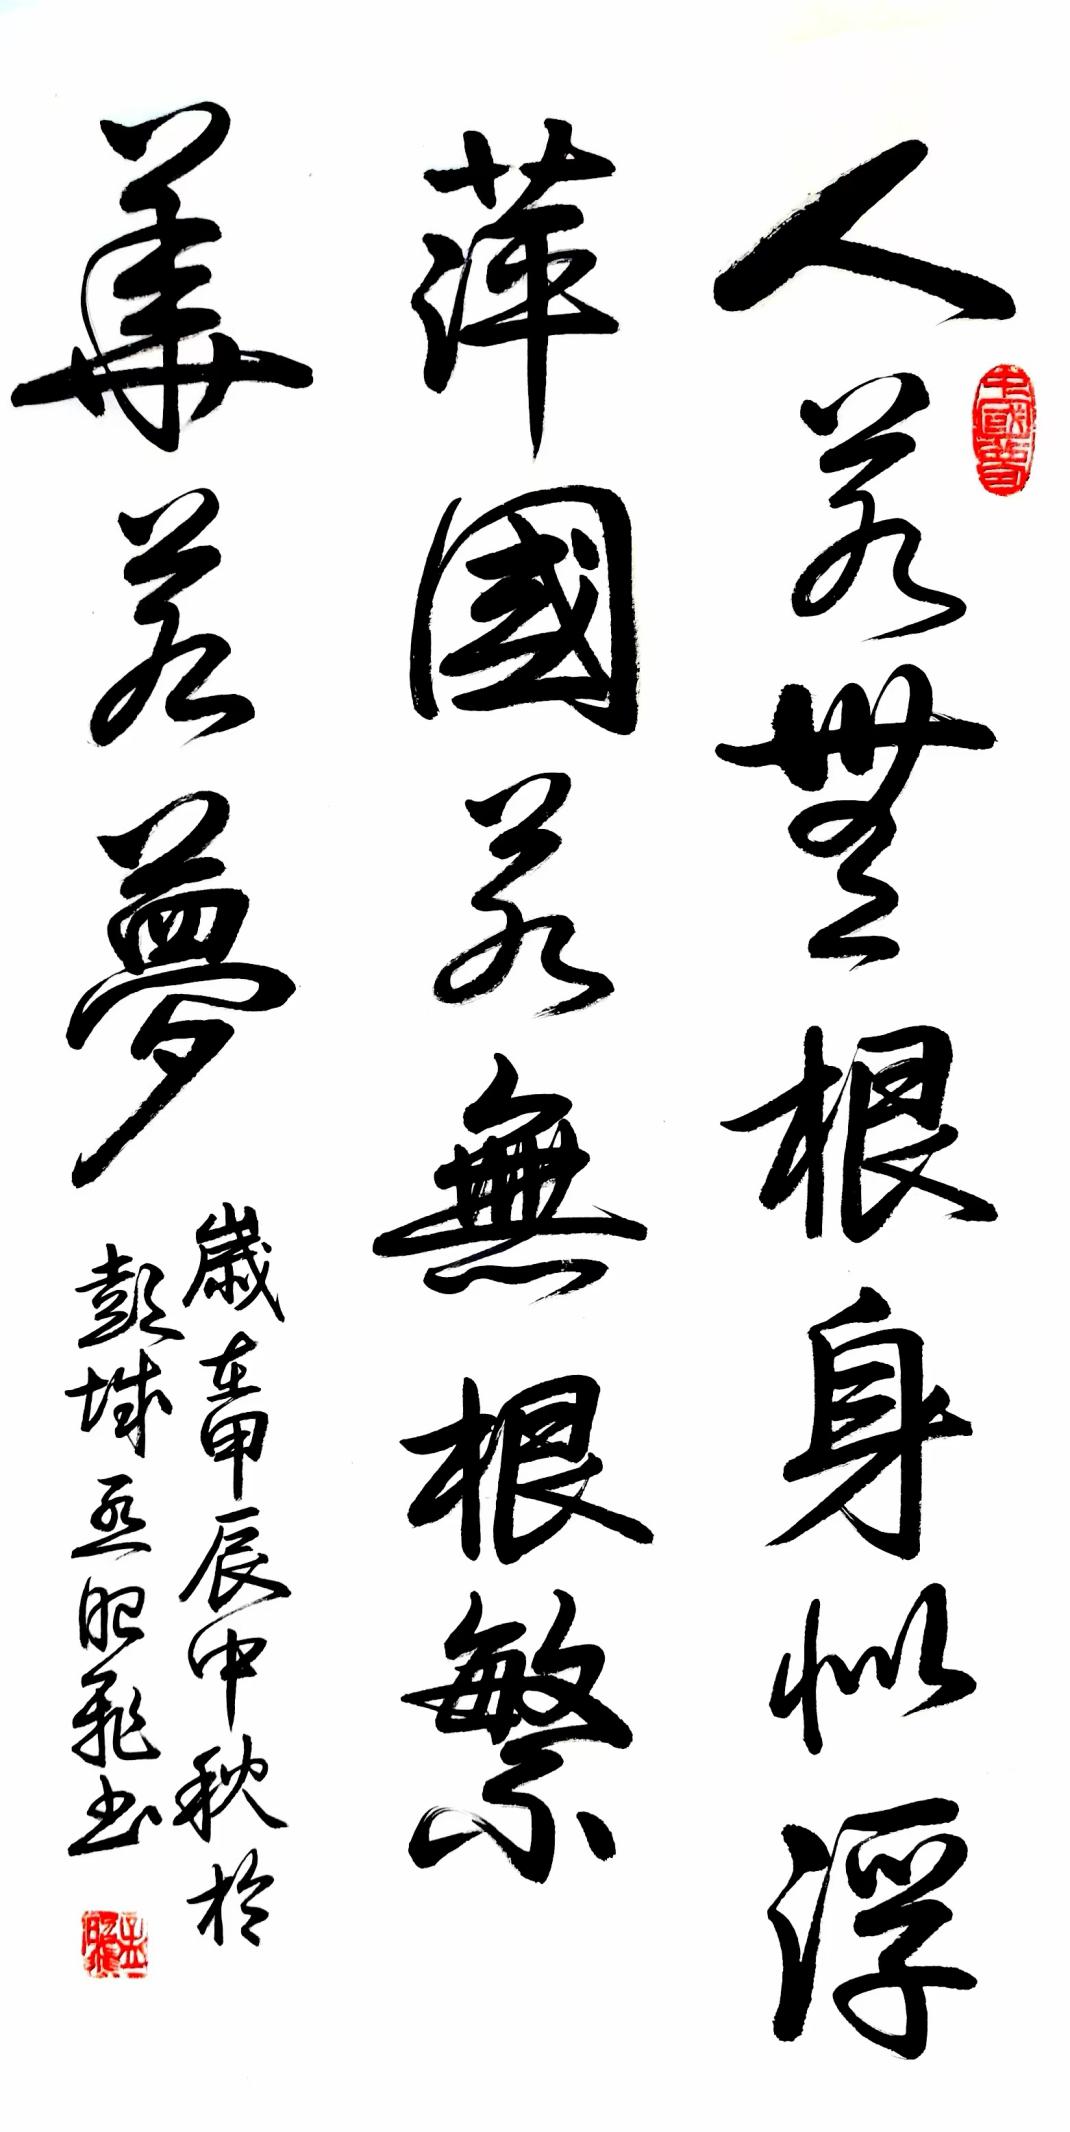 人若無根身似浮
萍國若無根繁
華若夢
歲在甲辰中秋於
彭城 書
中國夢